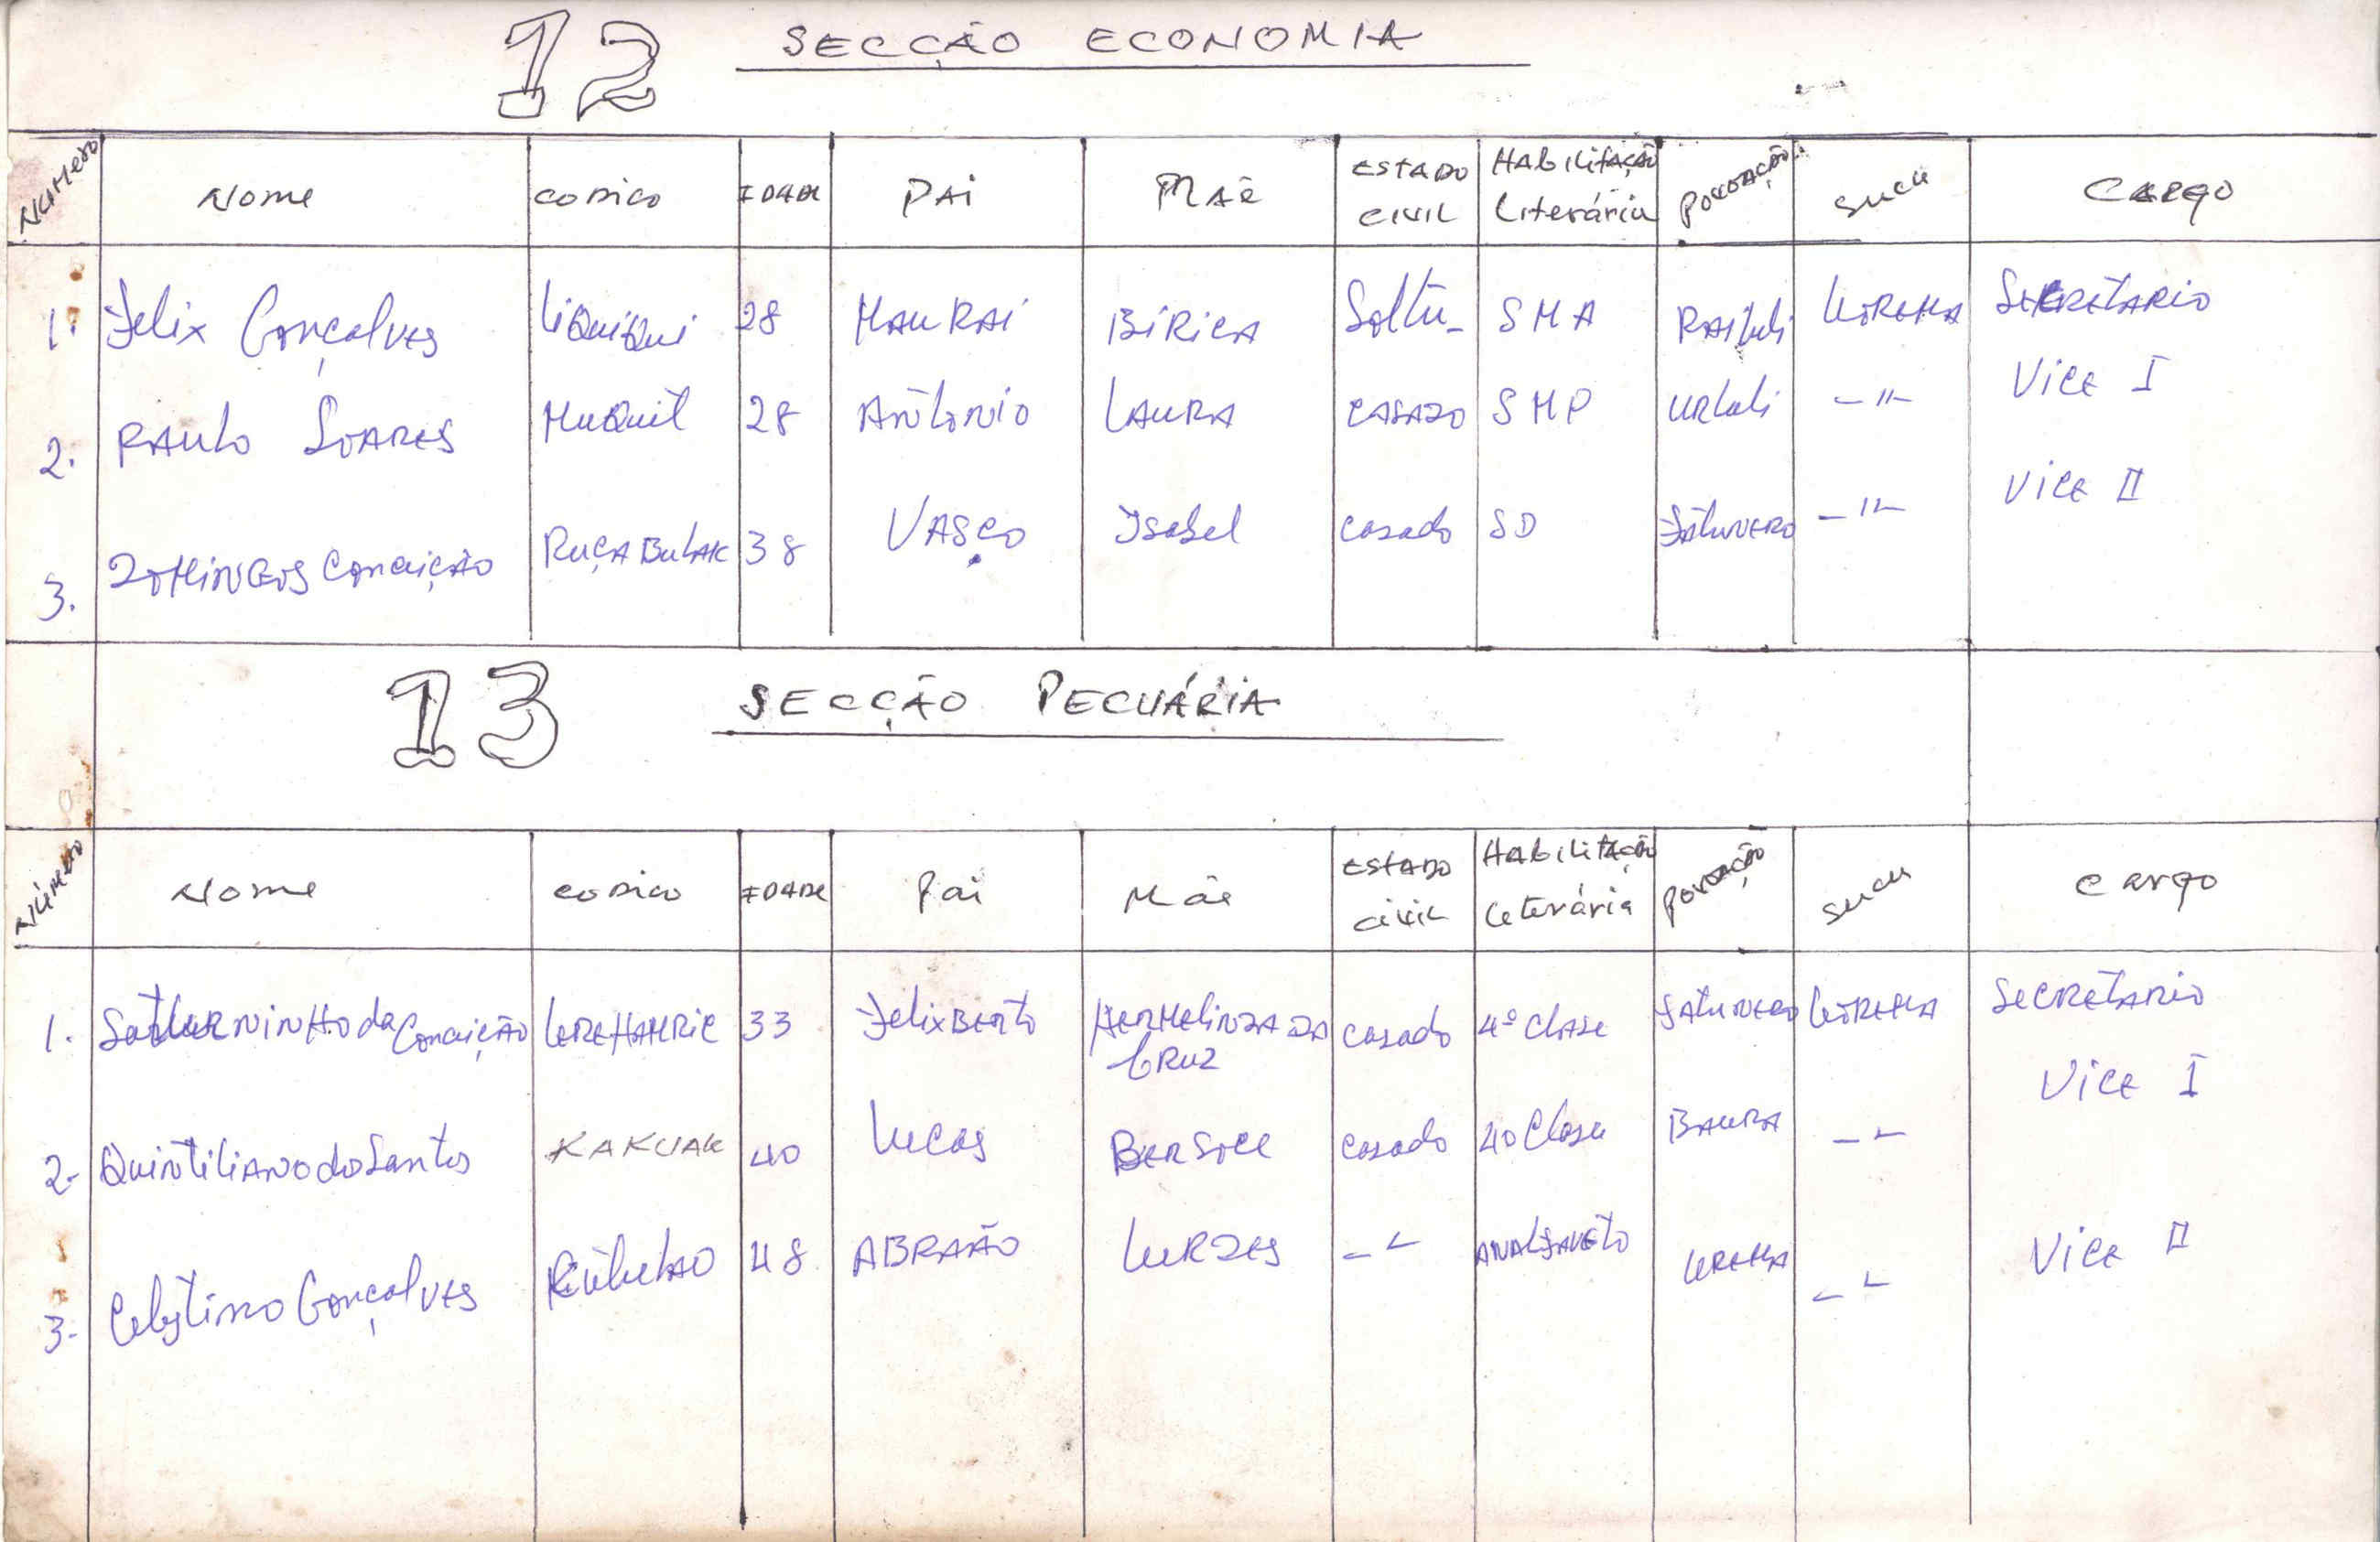 12 SECCÃO ECONOMIA
NUMERO Nome CODICO IDADE PAI MÃE ESTADO CIVIL HABILITAÇÃO LITERÁRIA POVOAÇÃO SUCU CARGO
1. Felix Gonçalves LiQuiQui 28 MAURAI BIRICA Soltu- SMA RAiluli LOREMA SECRETARIO
2. PAULO SOARES MuQuit 28 ANTONIO LAURA CASADO SMP URLuli -"- Vice I
3. DOMINGOS Conceição RUÇA BULAK 38 VASCO Isabel casado SD FATUNERO -"- Vice II
13 SECCÃO PECUÁRIA
Número Nome CODICO IDADE Pai Mãe ESTADO civil HABILITAÇÃO Leterária POVOAÇÃO Sucu Cargo
1. SATURNINHO da Conceição LEREMAURIC 33 FelixBERTO HERMELINDA DA CRUZ casado 4º clase FATUNERO LOREMA SECRETARIO
2- QuintiLiANO do Santos KAKUAK 40 Lucas casado 40 Clase BAURA -- Vice I
3- Celestino Gonçalves 48 ABRAÃO LURDES -- ANALFAVETO LOREMA -- Vice II